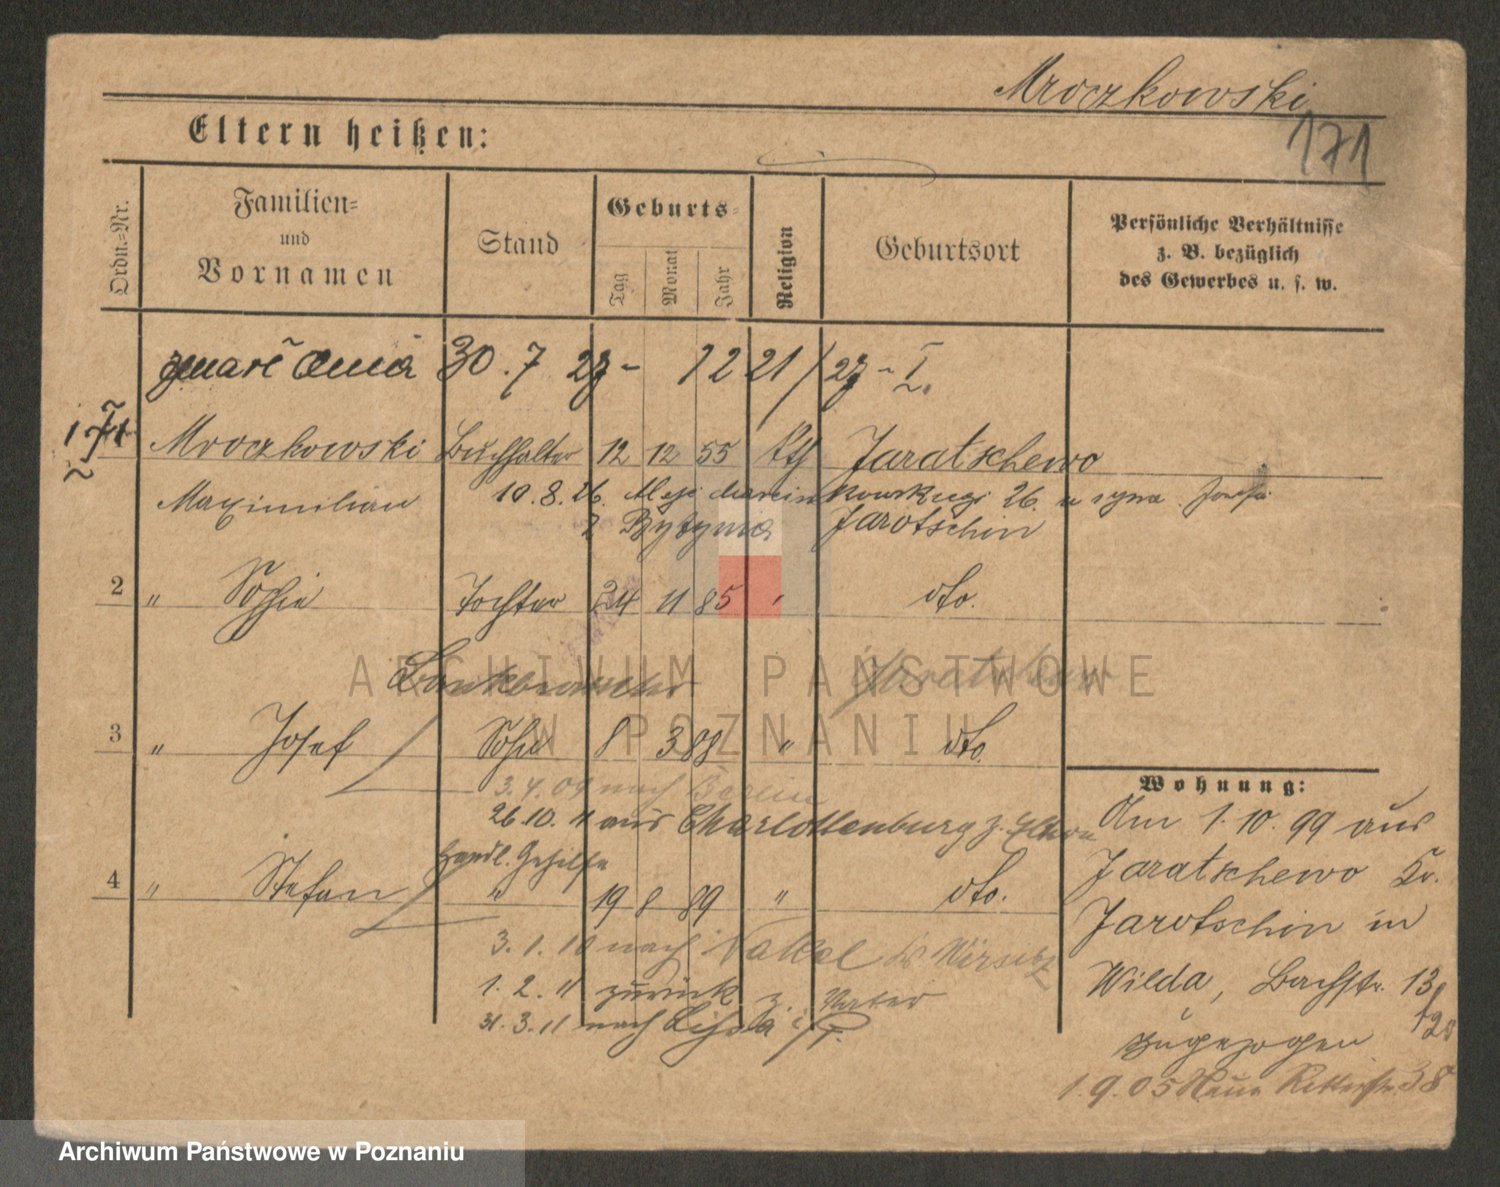 Mroczkowski
171
Eltern heißen:
Ordn.=Nr.
Familien=
und
Vornamen
Stand
Geburts=
Tag
Monat
Jahr
Religion
Geburtsort
Persönliche Verhältnisse
z. B. bezüglich
des Gewerbes u. s. w.
zmarł dnia 30.7 27 - 1221/27 - I.
1 Mroczkowski Buchhalter 12 12 55 kth Jaratschewo
Maximilian 10.8.26.
z Bytynia Jarotschin
2 " Sophie Tochter 24 11 85 " dto.
Jaratschewo
3 " Josef Sohn 8 3 88 " dto.
3.4.09 nach Berlin
26.10.11 aus Charlottenburg z. Eltern
Handl. Gehilfe
4 " Stefan " 19 8 89 " dto.
3.1.10 nach Nakel Kr. Wirsitz
1.2.11 zurück z. Vater
31.3.11 nach Lissa i/P.
Wohnung:
Am 1.10.99 aus
Jaratschewo Kr.
Jarotschin in
Wilda, Bachstr. 13
zugezogen
1.9.05 Neue Ritterstr. 38
ARCHIWUM PAŃSTWOWE
W POZNANIU
Archiwum Państwowe w Poznaniu